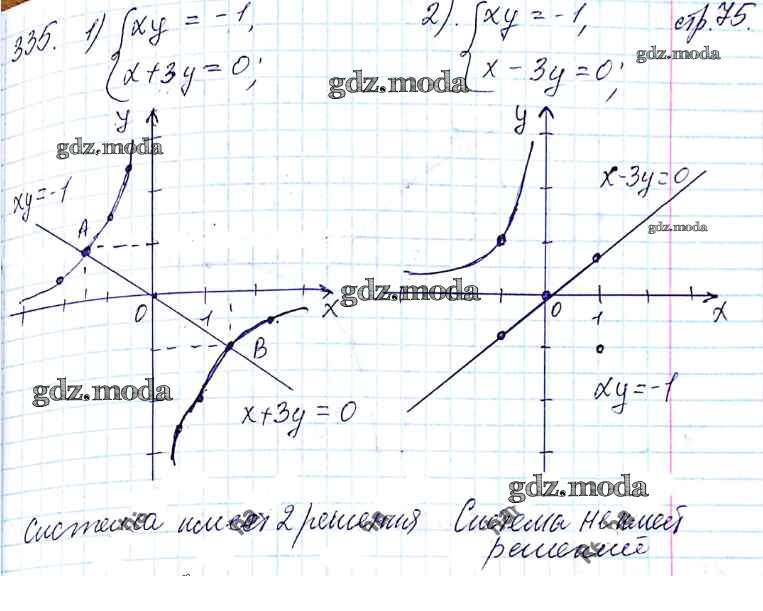 335. 1) { xy = -1,
x + 3y = 0;
2). { xy = -1,
x - 3y = 0;
стр. 75.
gdz.moda
gdz.moda
gdz.moda
y
xy = -1
A
0
1
x
B
x + 3y = 0
gdz.moda
gdz.moda
y
x - 3y = 0
gdz.moda
0
1
x
xy = -1
gdz.moda
Система имеет 2 решения
Система не имеет
решений